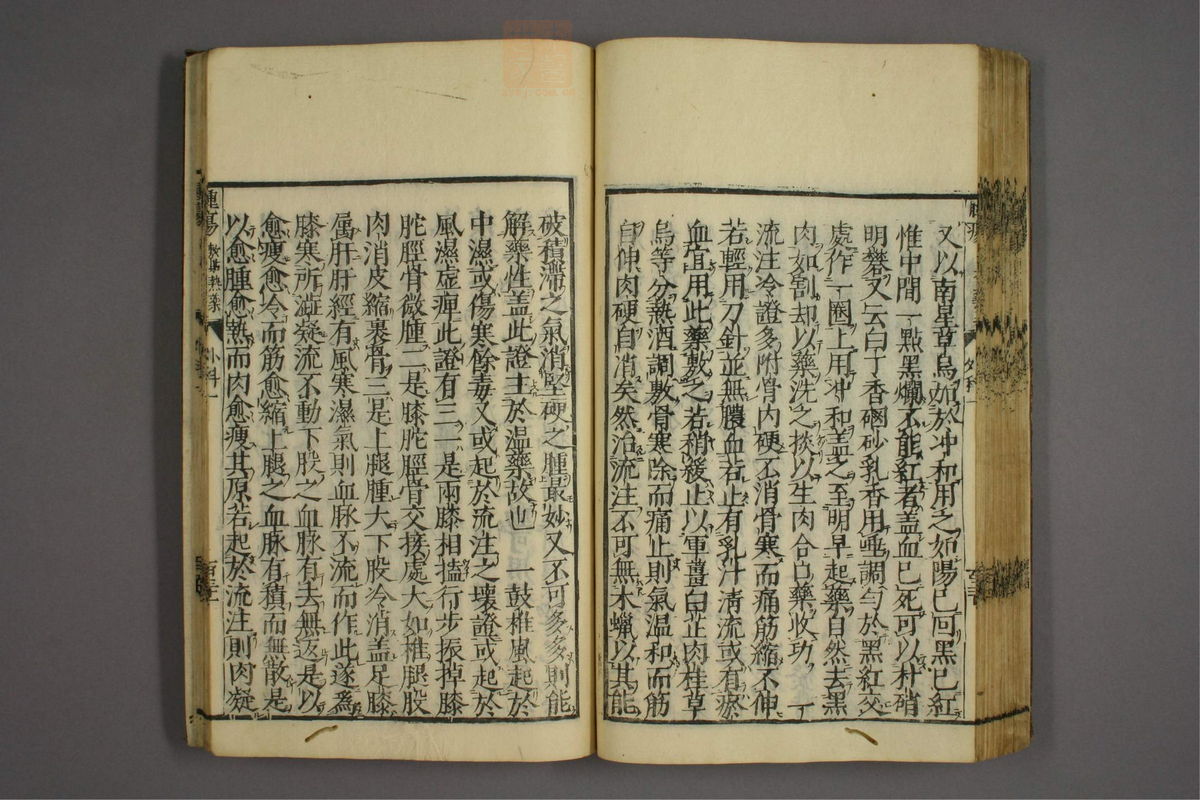 又以南星草烏加於冲和用之如陽已回黑已紅
惟中間一點黑爛不能紅者盖血已死可以朴硝
明礬又云白丁香硇砂乳香用唾調勻於黑紅交
處作一圈上用冲和盖之至明早起藥自然去黑
肉如割却以藥洗之掞以生肉合口藥收功 一
流注冷證多附骨内硬不消骨寒而痛筋縮不伸
若輕用刀針並無膿血若止有乳汁清流或有瘀
血宜用此藥敷之若稍緩止以軍薑白芷肉桂草
烏等分熱酒調敷骨寒除而痛止則氣溫和而筋
自伸肉硬自消矣然治流注不可無木蠟以其能
破積滯之氣消堅硬之腫最妙又不可多多則能
解藥性盖此證主於溫藥故也 一鼓椎風起於
中濕或傷寒餘毒又或起於流注之壞證或起於
風濕虛痺此證有三一是兩膝相搕行步振掉膝
䏡脛骨微腫二是膝䏡脛骨交接處大如椎腿股
肉消皮縮裹骨三是上腿腫大下股冷消盖足膝
属肝肝經有風寒濕氣則血脉不流而作此遂爲
膝寒所澁凝流不動下股之血脉有去無返是以
愈瘦愈冷而筋愈縮上腿之血脉有積而無散是
以愈腫愈熱而肉愈瘦其原若起於流注則肉凝
小科一